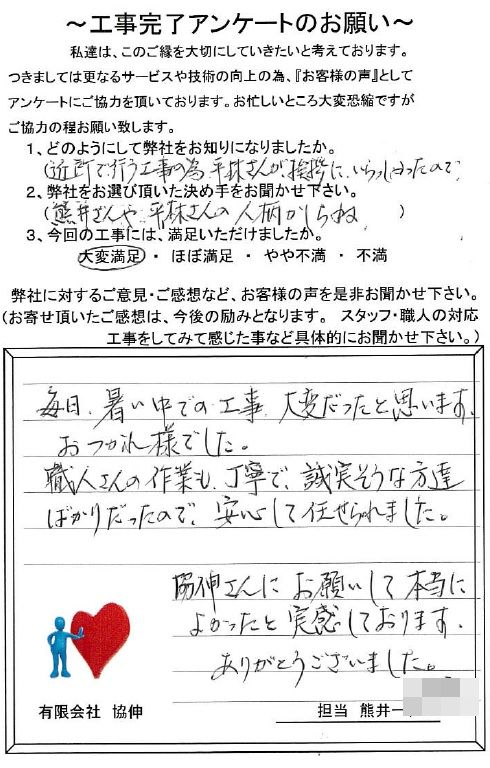 ～工事完了アンケートのお願い～
私達は、このご縁を大切にしていきたいと考えております。
つきましては更なるサービスや技術の向上の為、『お客様の声』として
アンケートにご協力を頂いております。お忙しいところ大変恐縮ですが
ご協力の程お願い致します。
1、どのようにして弊社をお知りになりましたか。
(近所で行う工事の為平林さんが挨拶に、いらっしゃったので
2、弊社をお選び頂いた決め手をお聞かせ下さい。
(熊井さんや、平林さんの人柄からね )
3、今回の工事には、満足いただけましたか。
大変満足 ・ ほぼ満足 ・ やや不満 ・ 不満
弊社に対するご意見・ご感想など、お客様の声を是非お聞かせ下さい。
(お寄せ頂いたご感想は、今後の励みとなります。 スタッフ・職人の対応
工事をしてみて感じた事など具体的にお聞かせ下さい。)
毎日、暑い中での工事、大変だったと思います。
おつかれ様でした。
職人さんの作業も、丁寧で、誠実そうな方達
ばかりだったので、安心して任せられました。
協伸さんにお願いして本当に
よかったと実感しております。
ありがとうございました。
有限会社 協伸
担当 熊井一